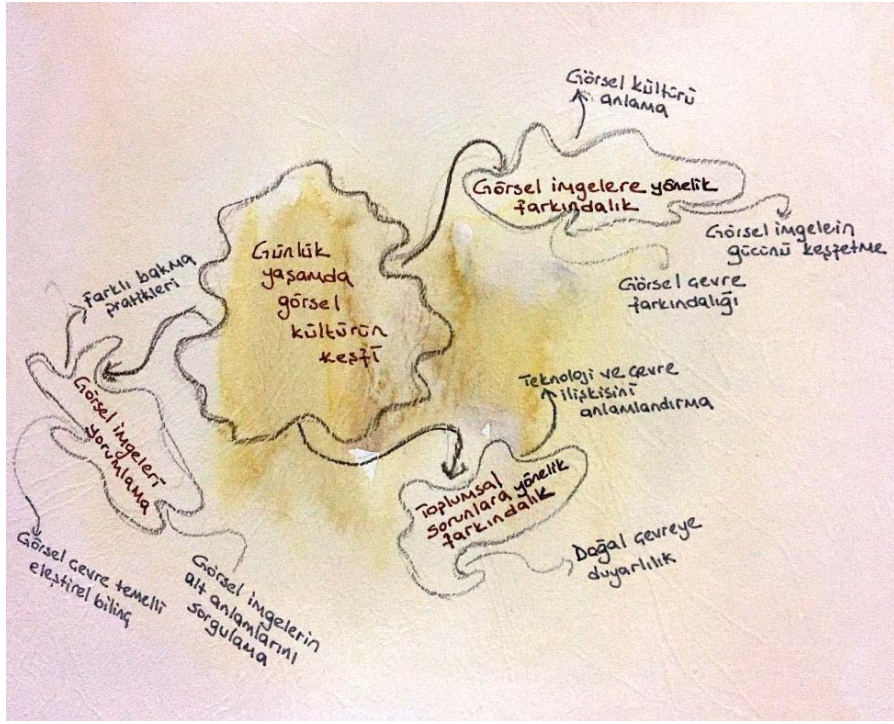 Günlük
yaşamda
görsel
kültürün
keşfi
Görsel imgelere yönelik
farkındalık
Görsel kültürü
anlama
Görsel imgelein
gücünü keşfetme
Görsel çevre
farkındalığı
Toplumsal
sorunlara yönelik
farkındalık
Teknoloji ve çevre
ilişkisini
anlamlandırma
Doğal çevreye
duyarlılık
Görsel imgeleri
yorumlama
farklı bakma
pratikleri
Görsel çevre temelli
eleştirel bilinç
Görsel imgelerin
alt anlamlarını
sorgulama